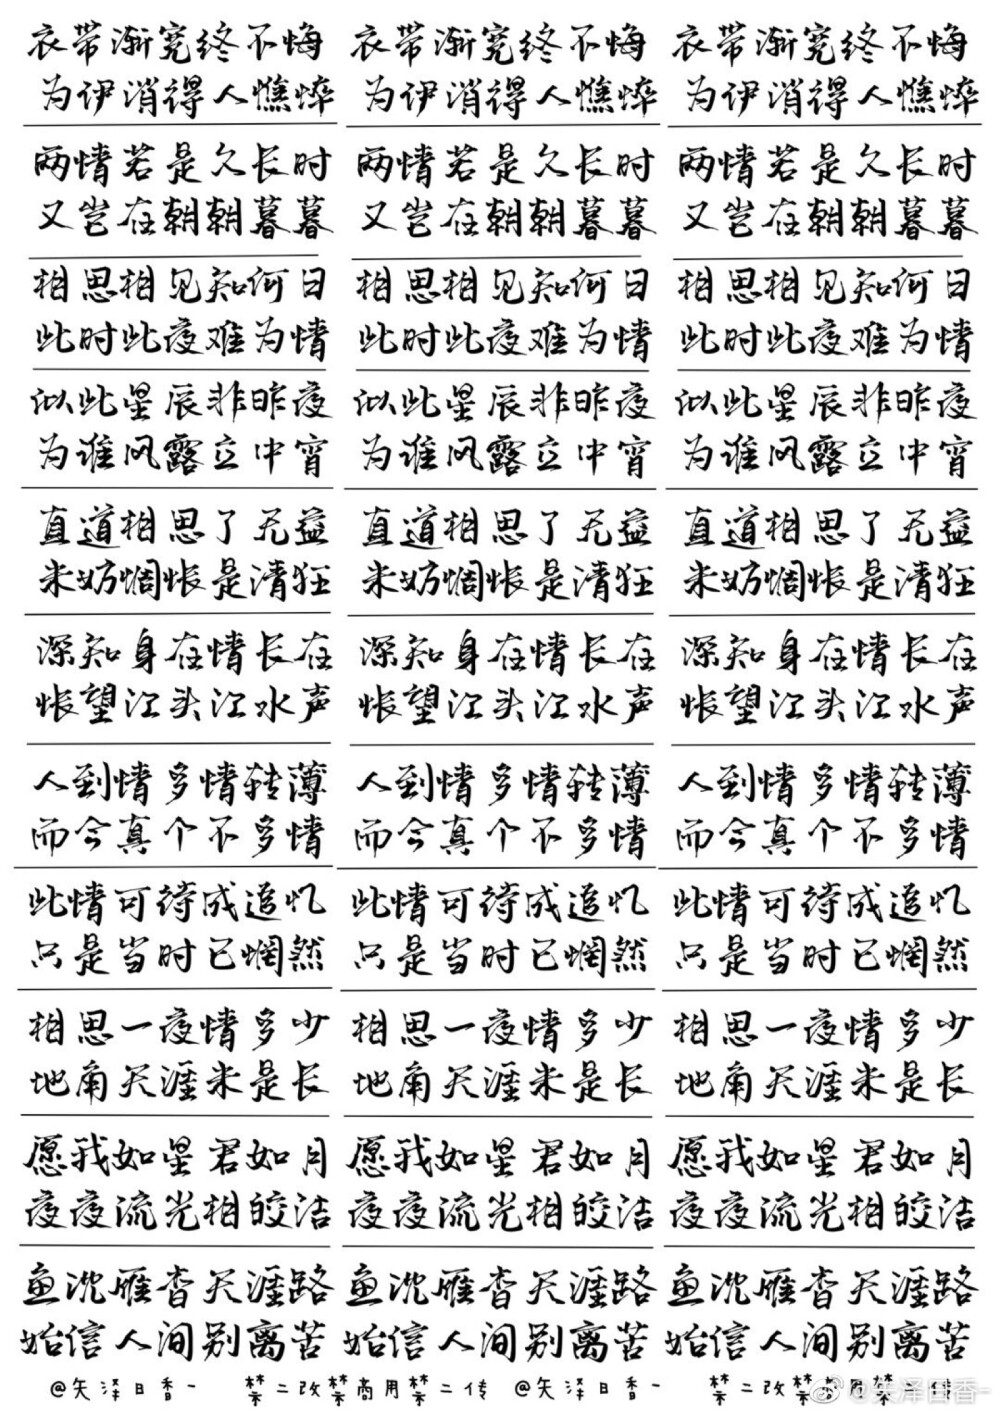 衣带渐宽终不悔 衣带渐宽终不悔 衣带渐宽终不悔
为伊消得人憔悴 为伊消得人憔悴 为伊消得人憔悴
两情若是久长时 两情若是久长时 两情若是久长时
又岂在朝朝暮暮 又岂在朝朝暮暮 又岂在朝朝暮暮
相思相见知何日 相思相见知何日 相思相见知何日
此时此夜难为情 此时此夜难为情 此时此夜难为情
似此星辰非昨夜 似此星辰非昨夜 似此星辰非昨夜
为谁风露立中宵 为谁风露立中宵 为谁风露立中宵
直道相思了无益 直道相思了无益 直道相思了无益
未妨惆怅是清狂 未妨惆怅是清狂 未妨惆怅是清狂
深知身在情长在 深知身在情长在 深知身在情长在
怅望江头江水声 怅望江头江水声 怅望江头江水声
人到情多情转薄 人到情多情转薄 人到情多情转薄
而今真个不多情 而今真个不多情 而今真个不多情
此情可待成追忆 此情可待成追忆 此情可待成追忆
只是当时已惘然 只是当时已惘然 只是当时已惘然
相思一夜情多少 相思一夜情多少 相思一夜情多少
地角天涯未是长 地角天涯未是长 地角天涯未是长
愿我如星君如月 愿我如星君如月 愿我如星君如月
夜夜流光相皎洁 夜夜流光相皎洁 夜夜流光相皎洁
鱼沈雁杳天涯路 鱼沈雁杳天涯路 鱼沈雁杳天涯路
始信人间别离苦 始信人间别离苦 始信人间别离苦
@矢泽日香一 禁二改禁商用禁二传 @矢泽日香一 禁二改禁商用禁二传
@矢泽日香-